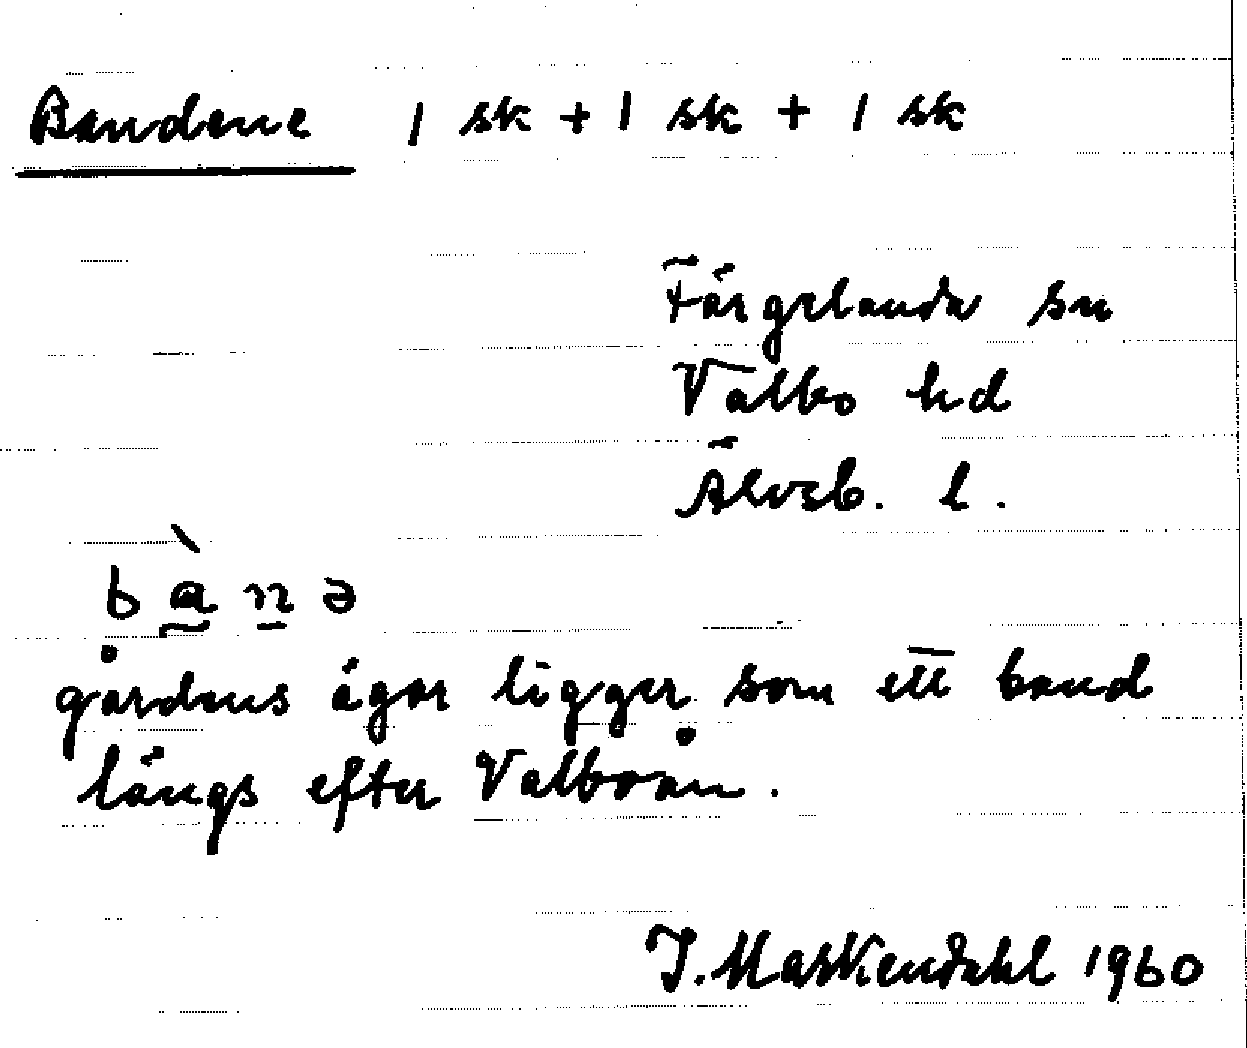 Bandene 1 sk + 1 sk + 1 sk
Färgelanda sn
Valbo hd
Älvsb. l.
bànə
gårdens ägor ligger som ett band
längs efter Valboån.
1960